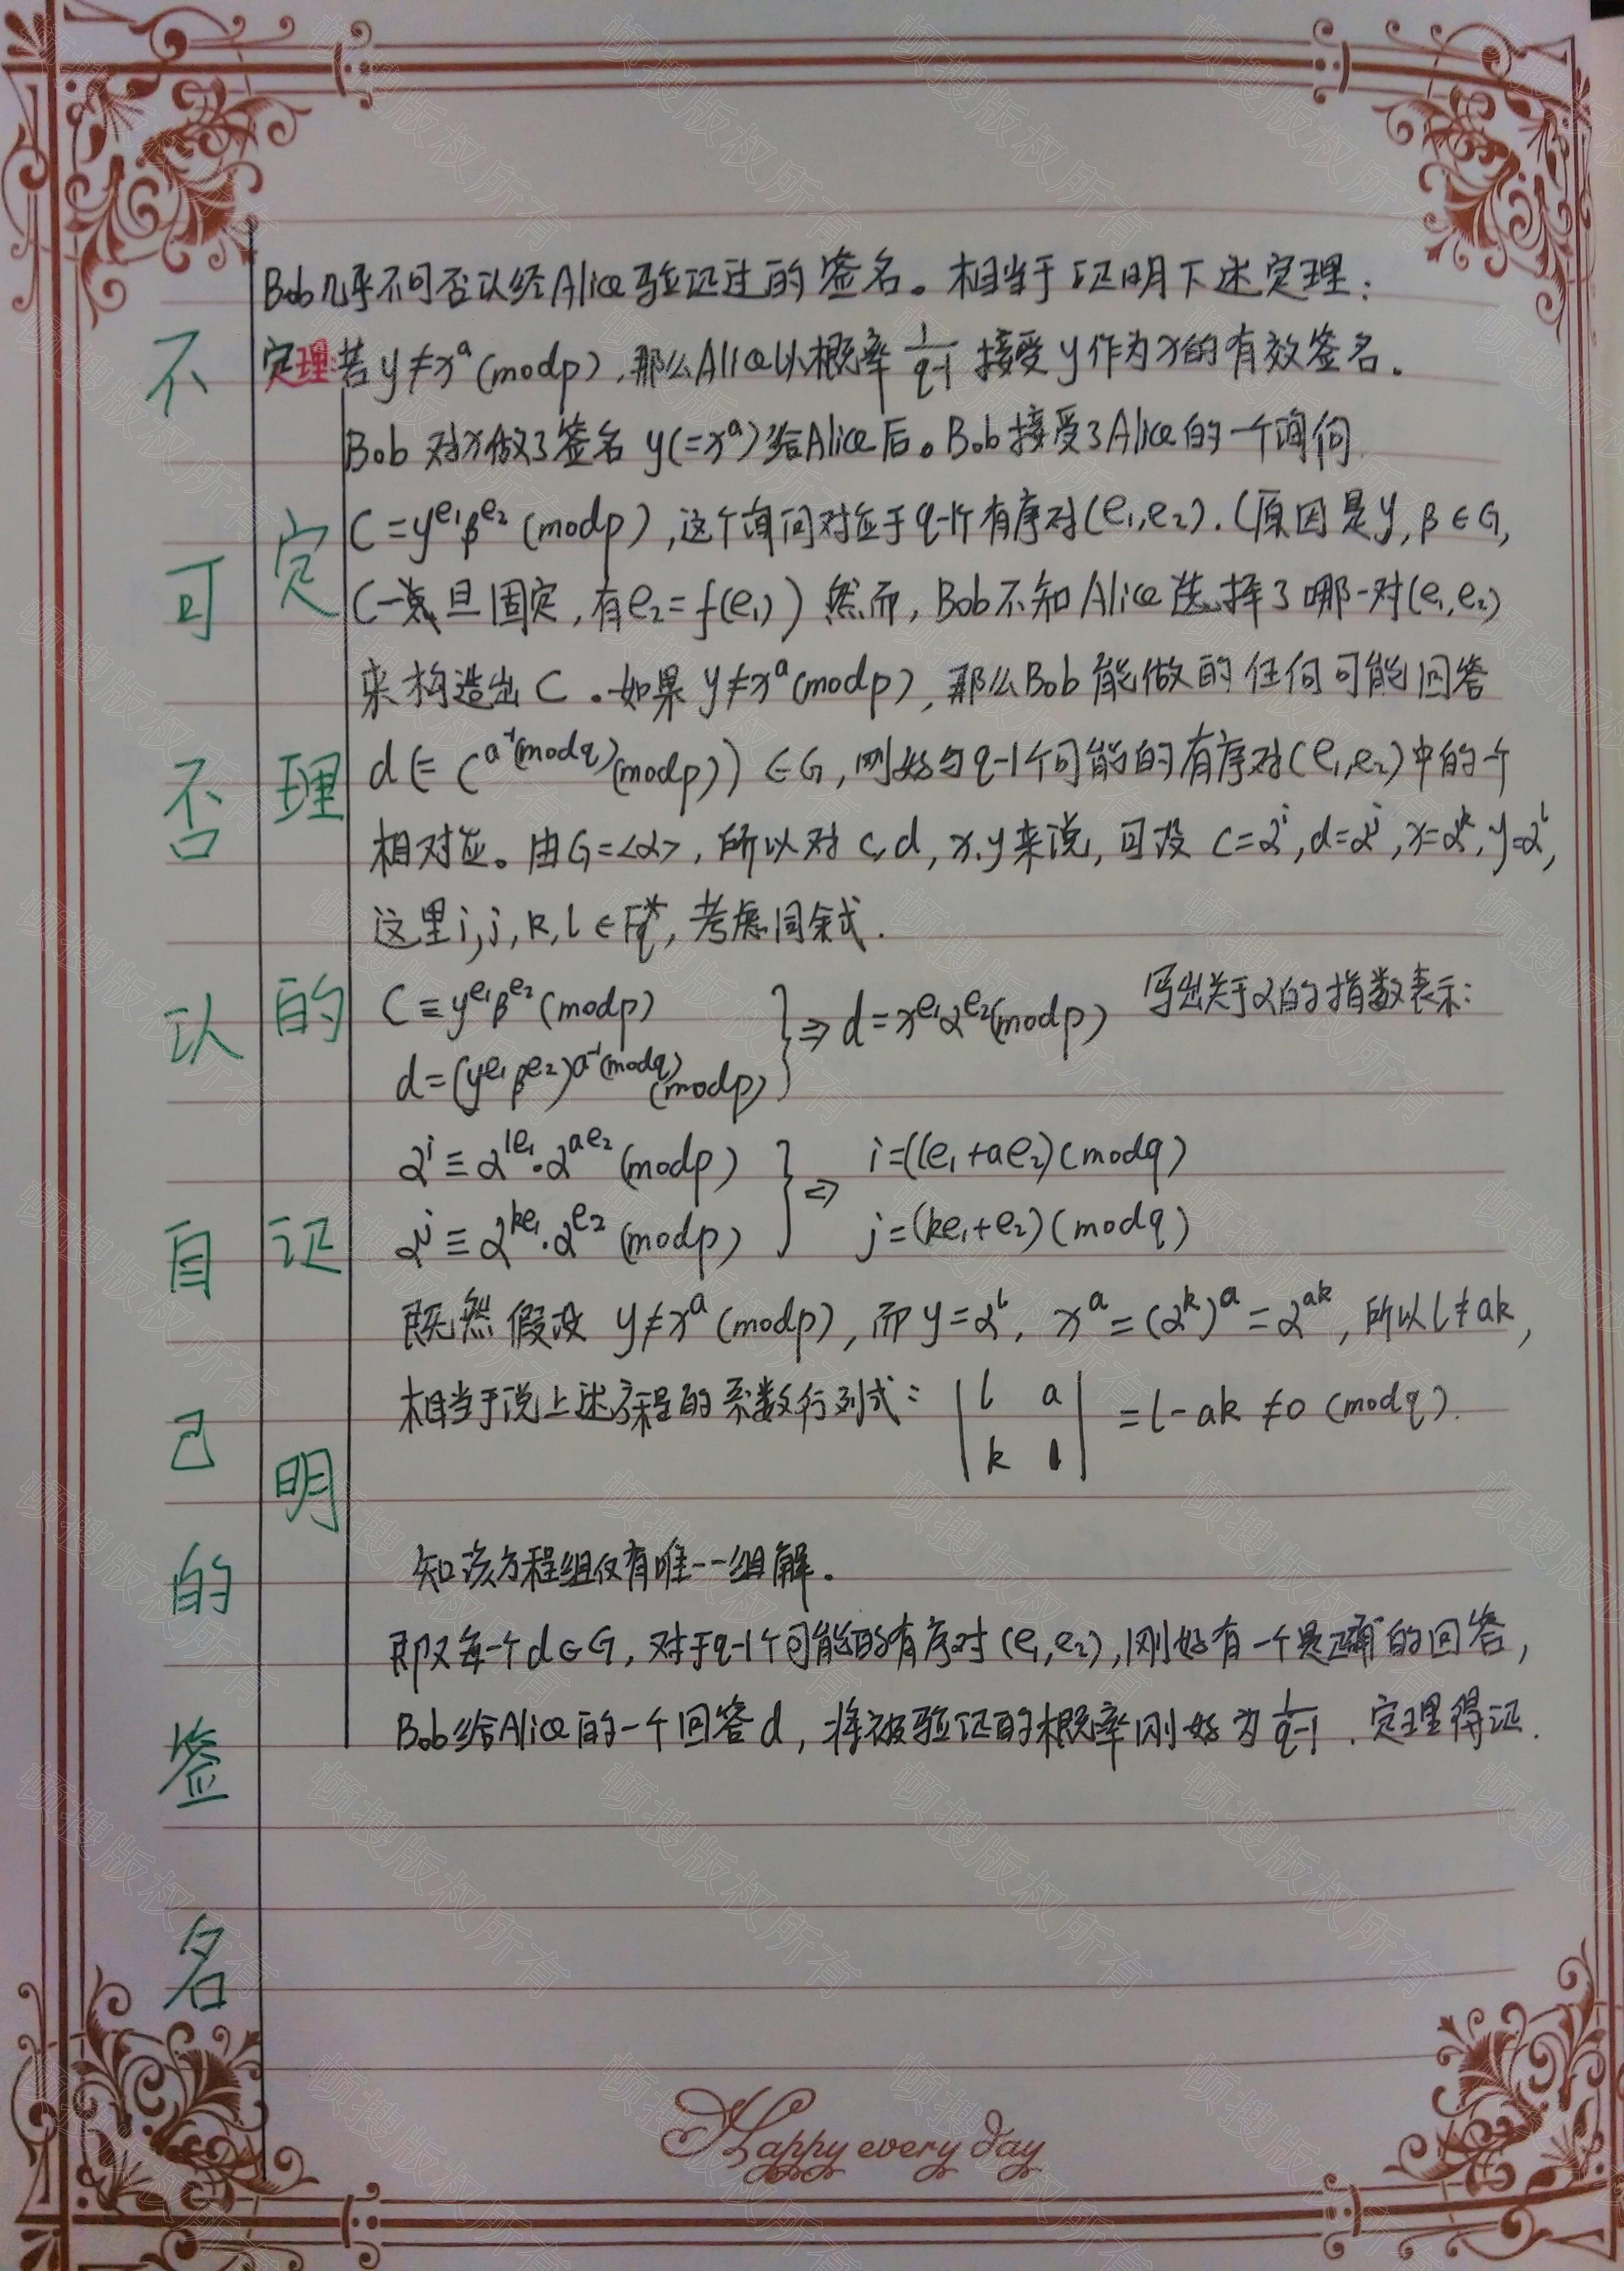 不可否认自己的签名
定理的证明
Bob几乎不可否认经Alice验证过的签名。相当于证明下述定理：
定理:若 y≠xᵃ(modp),那么Alice以概率 1/(q-1) 接受y作为x的有效签名.
Bob 对x做了签名 y(=xᵃ)给Alice后。Bob接受了Alice的一个询问
C=y^e₁β^e₂(modp),这个询问对应于q-1个有序对(e₁,e₂).(原因是y,β∈G,
C一旦固定,有e₂=f(e₁))然而,Bob不知Alice选择了哪一对(e₁,e₂)
来构造出C.如果 y≠xᵃ(modp),那么Bob能做的任何可能回答
d(=C^(a⁻¹(modq))(modp))∈G,刚好与q-1个可能的有序对(e₁,e₂)中的一个
相对应。由G=<α>,所以对c,d,x,y来说,可设 C=αⁱ,d=αʲ,x=αᵏ,y=αˡ,
这里i,j,k,l∈Fq*,考虑同余式.
C≡y^e₁β^e₂(modp)
d=(y^e₁β^e₂)^a⁻¹(modq)(modp)
}⇒d=x^e₁α^e₂(modp) 写出关于α的指数表示:
αⁱ≡α^le₁·α^ae₂(modp)
αʲ≡α^ke₁·α^e₂(modp)
}⇒ i=(le₁+ae₂)(modq)
j=(ke₁+e₂)(modq)
既然假设 y≠xᵃ(modp),而y=αˡ, xᵃ=(αᵏ)ᵃ=α^ak,所以l≠ak,
相当于说上述方程的系数行列式: | l a |
| k 1 | =l-ak≠0(modq).
知该方程组仅有唯一一组解.
即对每一个d∈G,对于q-1个可能的有序对(e₁,e₂),刚好有一个是正确的回答,
Bob给Alice的一个回答d,将被验证的概率刚好为 1/(q-1).定理得证.
Happy every day
顿搜版权所有